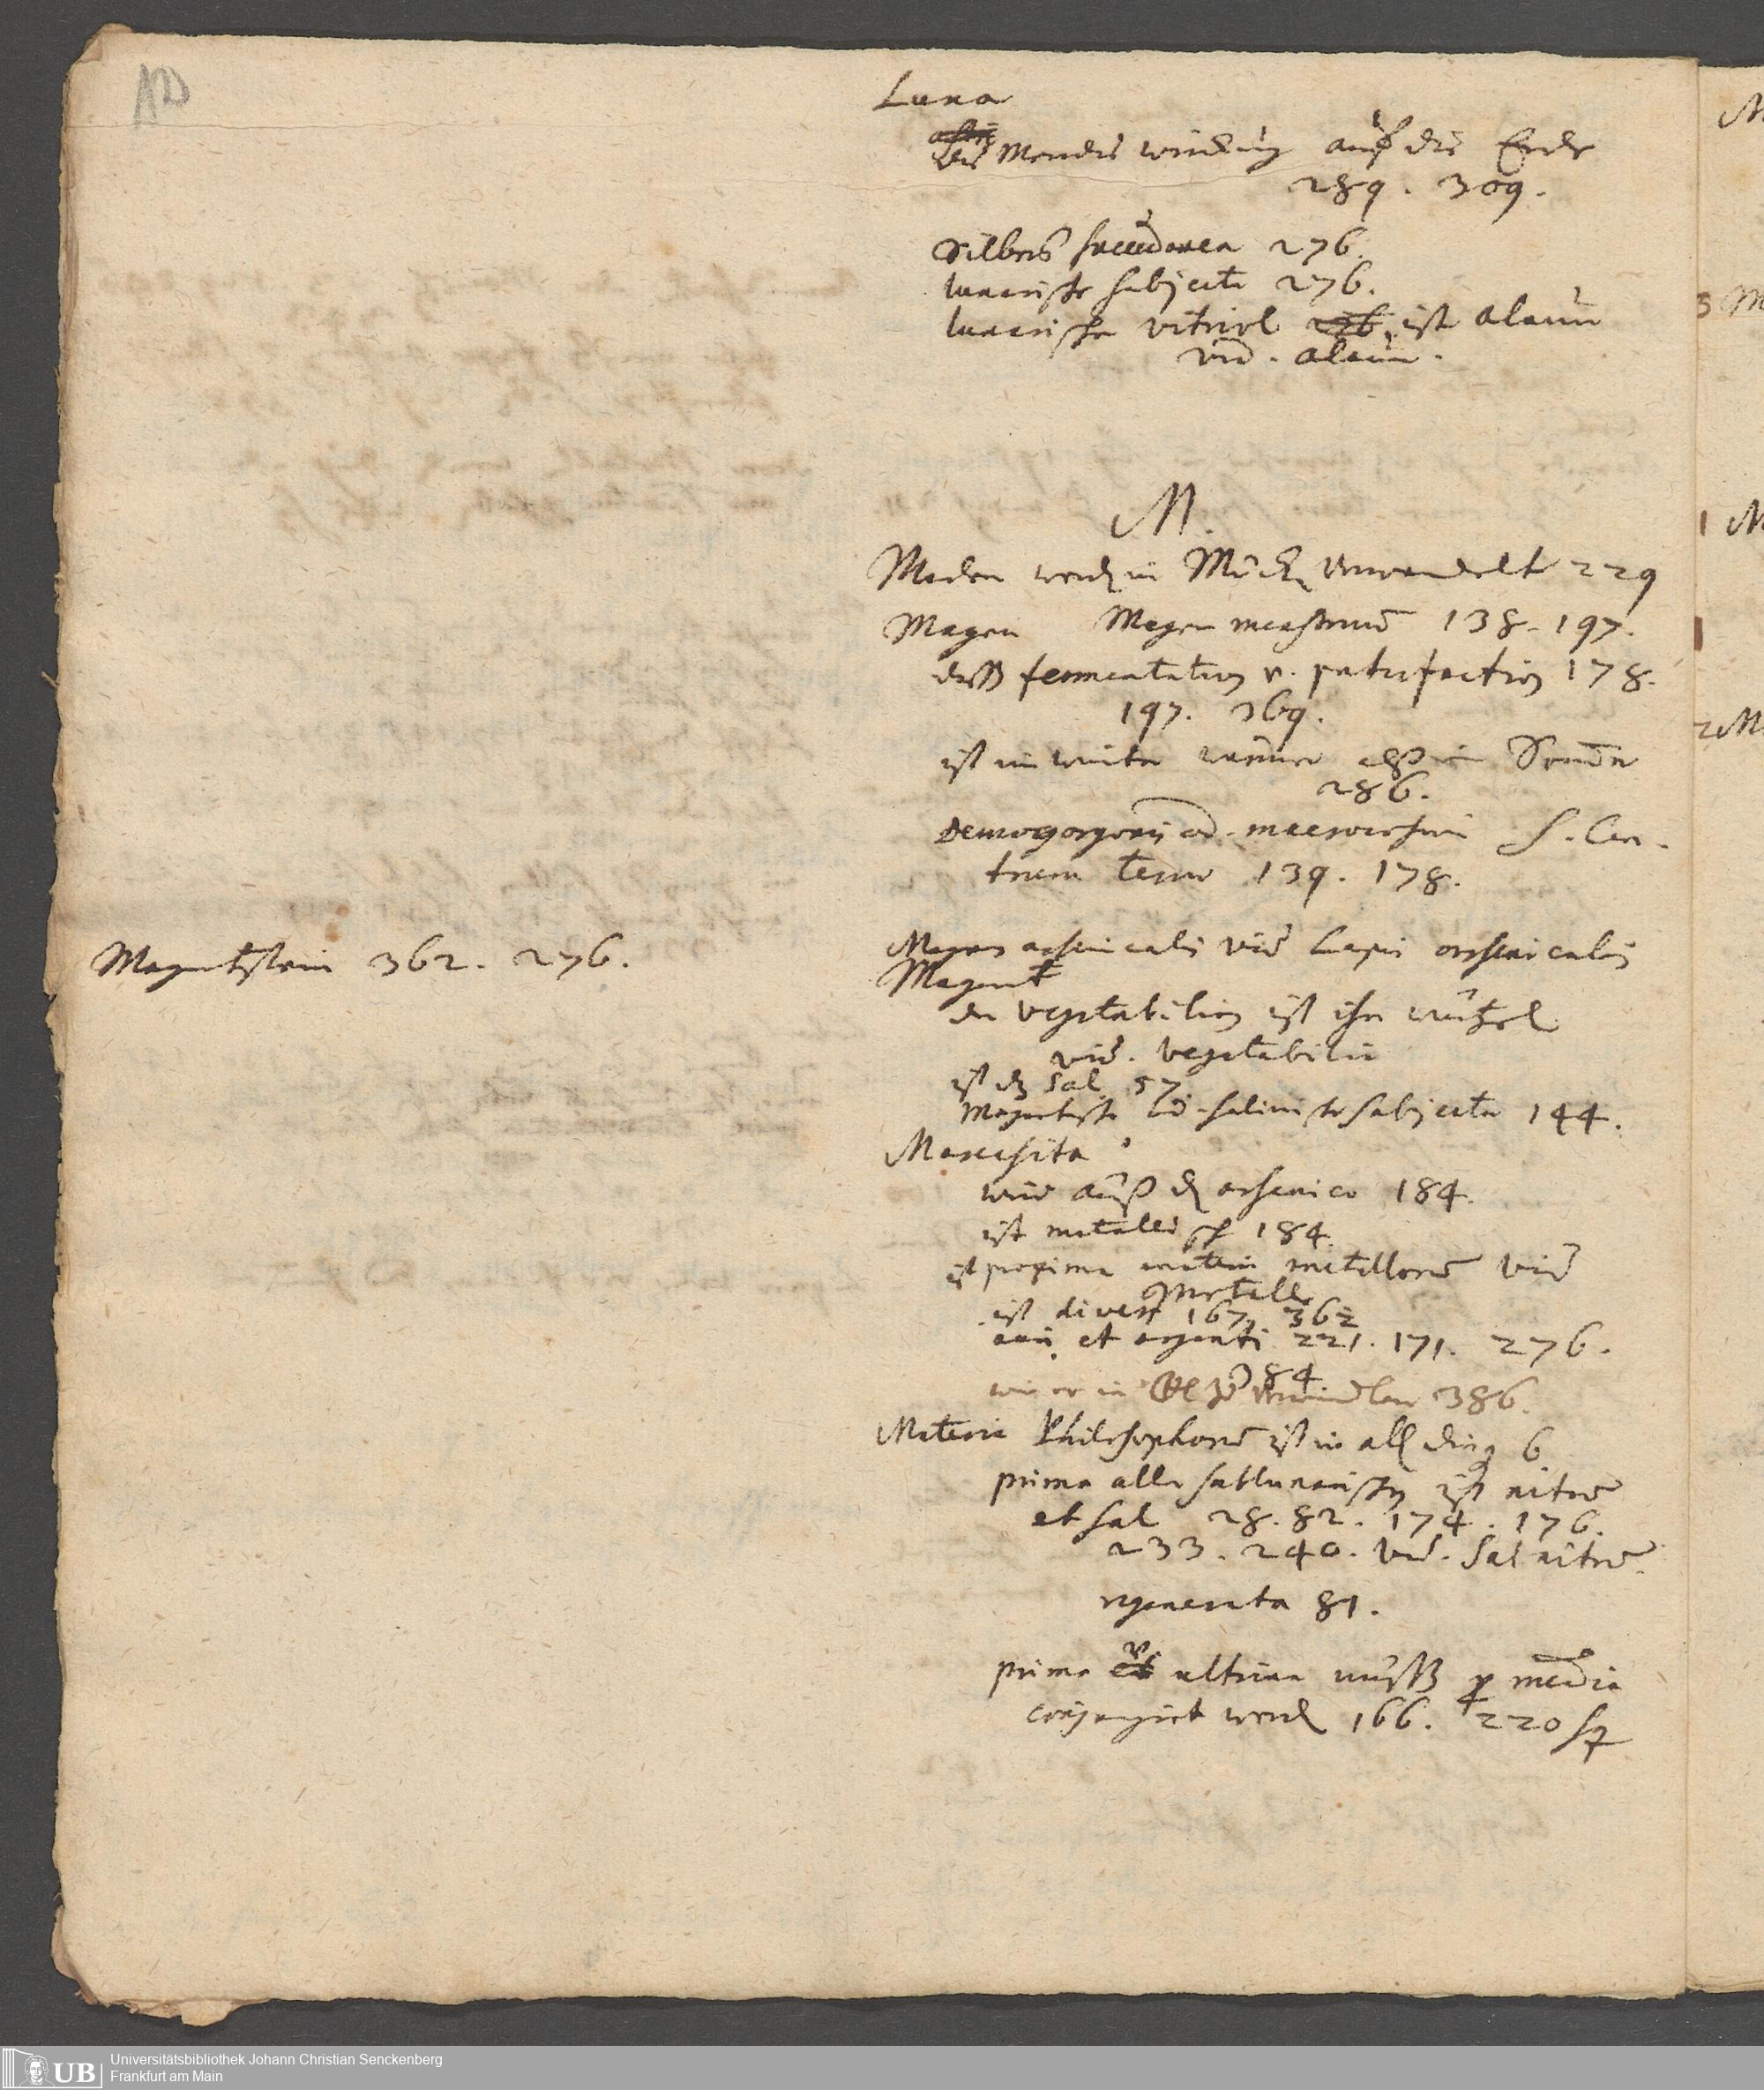 Luna
des Mondes wirckung auf die Erde
289. 309.
Silbers 276.
lunarische subjecta 276.
lunarischer vitriol 276. ist alaun
vid. alaun.
M.
Maden werden in Mücken verwandelt 229
Magen Magen menstruum 138. 197.
dess fermentation v. putrefaction 178.
197. 369.
ist im winter wärmer alß im Sommer
286.
Demogorgonis od. macrocosmi s. Cen-
trum terrae 139. 178.
Magnetstein 362. 276.
Magnes arsenicalis vid Lapis arsenicalis
Magnet
der vegetabilien ist ihre wurtzel
vid. vegetabilia
ist dz Sal 57
Magnetische od. salinische subjecta 144.
Marcasita
wird auß dem arsenico 184.
ist metallisch 184.
ist proxima materia metallorum vid
Metalle
ist divers 167. 362
auri et argenti 221. 171. 276.
384
386.
Materia Philosophorum ist in allen dingen 6
prima aller sublunarischen ist nitrum
et sal 28. 82. 174. 176.
233. 240. vid. Sal nitrum.
regenerata 81.
prima et ultima muß per media
conjungirt werden 166. 220 sq
UB
Universitätsbibliothek Johann Christian Senckenberg
Frankfurt am Main